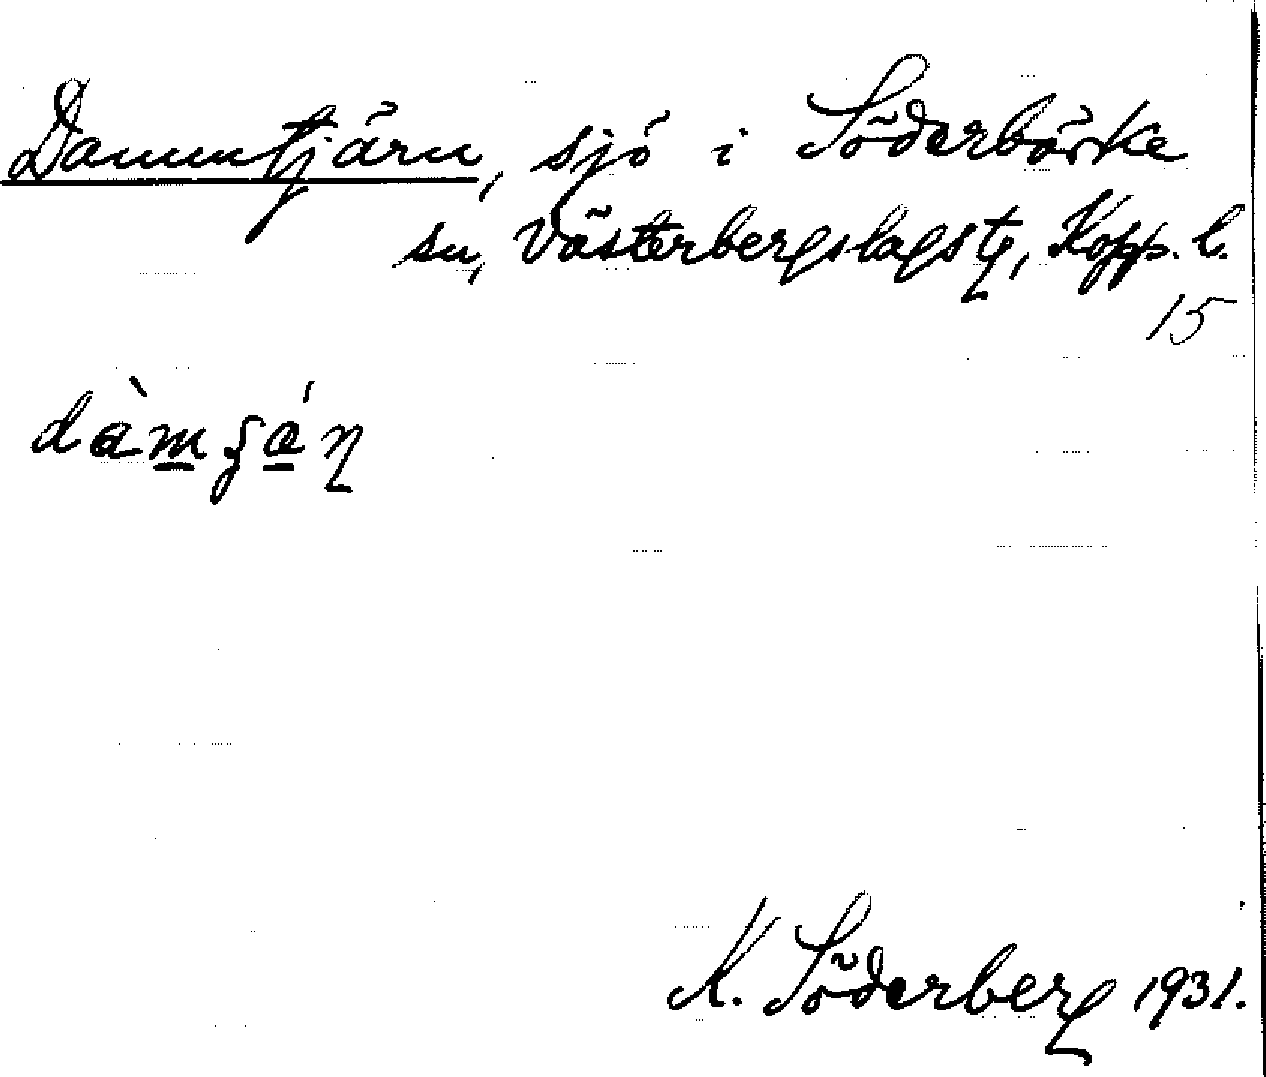 Dammtjärn, sjö i Söderbärke
sn, Västerbergslags tg, Kopp. l.
15
K. Söderberg 1931.